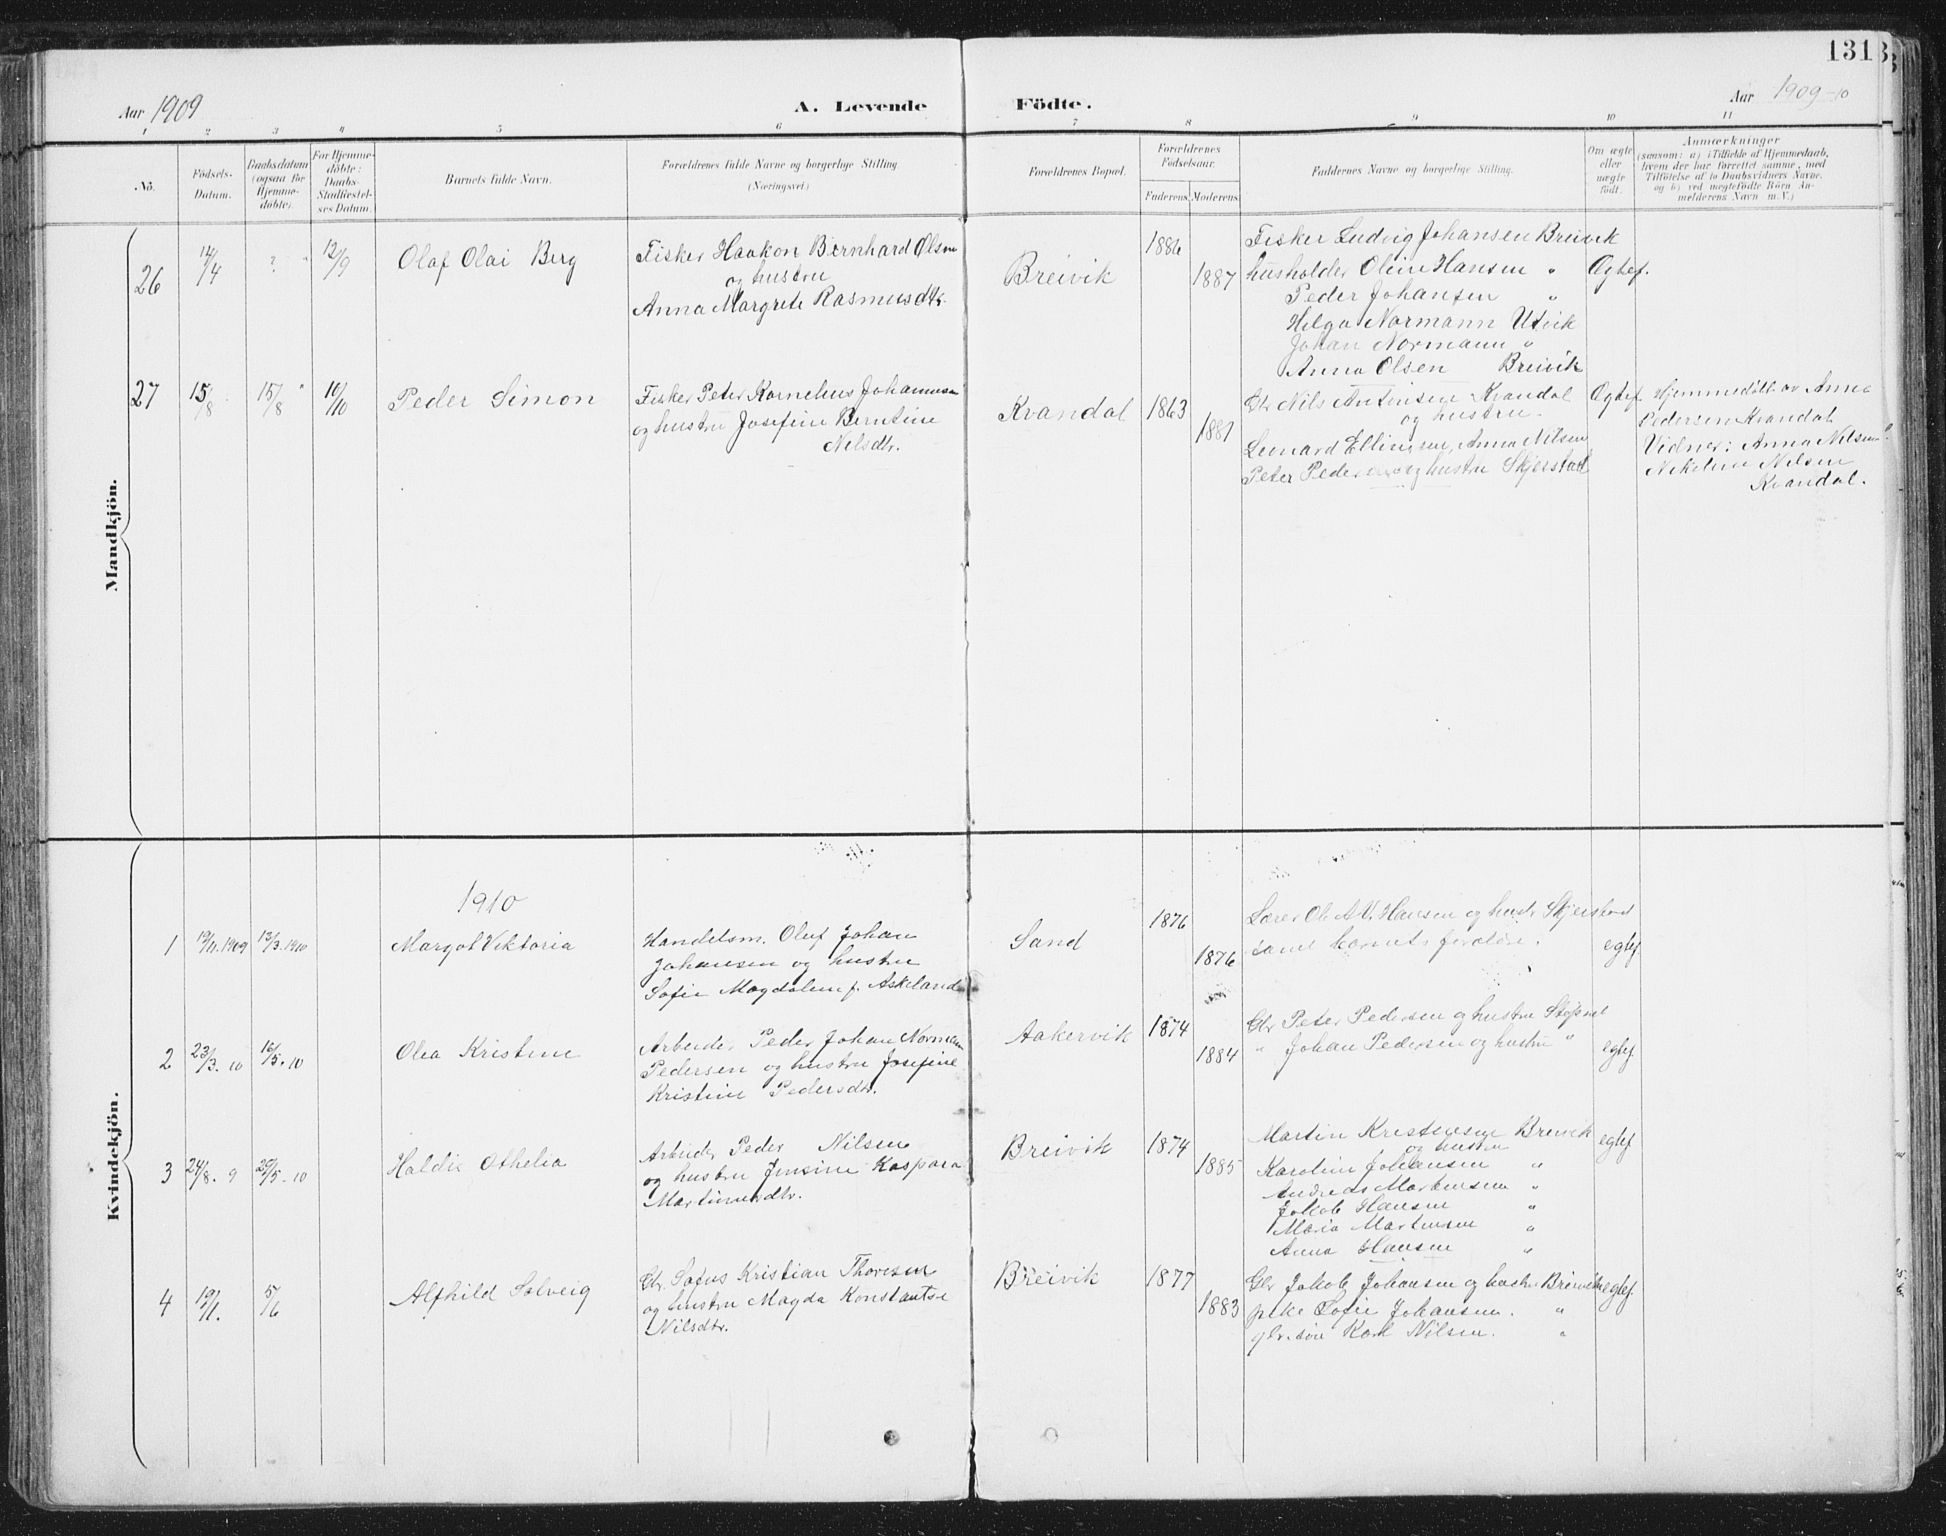 Aar 1909
A. Levende Födte.
Aar 1909-10
131
1 2 3 4 5 6 7 8 9 10 11
No.
Födsels-Datum.
Daabsdatum (ogsaa for Hjemme-döbte).
For Hjemme-döbte: Daabs-Stadfæstel-ses Datum.
Barnets fulde Navn.
Forældrenes fulde Navne og borgerlige Stilling (Næringsvei.)
Forældrenes Bopæl.
Forældrenes Födselsaar.
Faderens. Moderens.
Faddernes Navne og borgerlige Stilling.
Om ægte eller uægte födt.
Anmærkninger
(saasom: a) i Tilfælde af Hjemmedaab, hvem der har forrettet samme, med Tilföielse af to Daabsvidners Navne, og b) ved uegtefödte Börn An-melderens Navn m.V.)
Mandkjön.
26 14/4 ? " 12/9 Olaf Olai Berg
Fisker Haakon Bernhard Olsen
og hustru
Anna Margrete Rasmusdtr.
Breivik 1886 1887
Fisker Ludvig Johansen Breivik
husholder Oline Hansen "
Peder Johansen "
Helga Normann Utvik
Johan Normann "
Anna Olsen Breivik
Ægtef.
27 15/8 15/8 " 10/10 Peder Simon
Fisker Peter Kornelius Johannesen
og hustru Josefine Berntine
Nelsdtr.
Kvandal 1863 1881
Gbr Nils Antinsen Kvandal
og hustru
Leonard Ellingsen, Anna Nilsen
Peter Pedersen og hustru Skjerstad
Ægtef.
Hjemmedöbt av Anna
Pedersen Kvandal
Vidner: Anna Nilsen
Nikoline Nilsen
Kvandal.
Kvindekjön.
1910
1 19/11.1909 13/3.1910 Margot Viktoria
Handelsm. Oluf Johan
Johansen og hustru
Sofie Magdalene f. Askeland
Sand 1876 1876
Lærer Ol. A.V. Hansen og hustr Skjerstad
samt barnets forældre.
egtef.
2 23/3.10 16/5.10 Olea Kristine
Arbeider Peder Johan Norman
Pedersen og hustru Josefine
Kristine Pedersdtr.
Aakervik 1874 1884
Gbr Peter Pedersen og hustru
" Johan Pedersen og hustru "
egtef
3 24/8.9 25/5.10 Haldis Othelia
Arbeider Peder Nilsen
og hustru Jensine Kaspara
Martinusdtr.
Breivik 1874 1885
Martin Kristensen Breivik
og hustru
Karoline Johansen "
Andreas Martensen "
Jakob Hansen "
Maria Martensen "
Anna Hansen "
egtef
4 19/1. 5/6 Alfhild Solveig
Gbr. Sofus Kristian Thoresen
og hustru Magda Konstantse
Nilsdtr.
Breivik 1877 1883
Gbr Jakob Johansen og hustr. Breivik
pike Sofie Johansen. "
gbr.sön Karl Nilsen. "
egtef